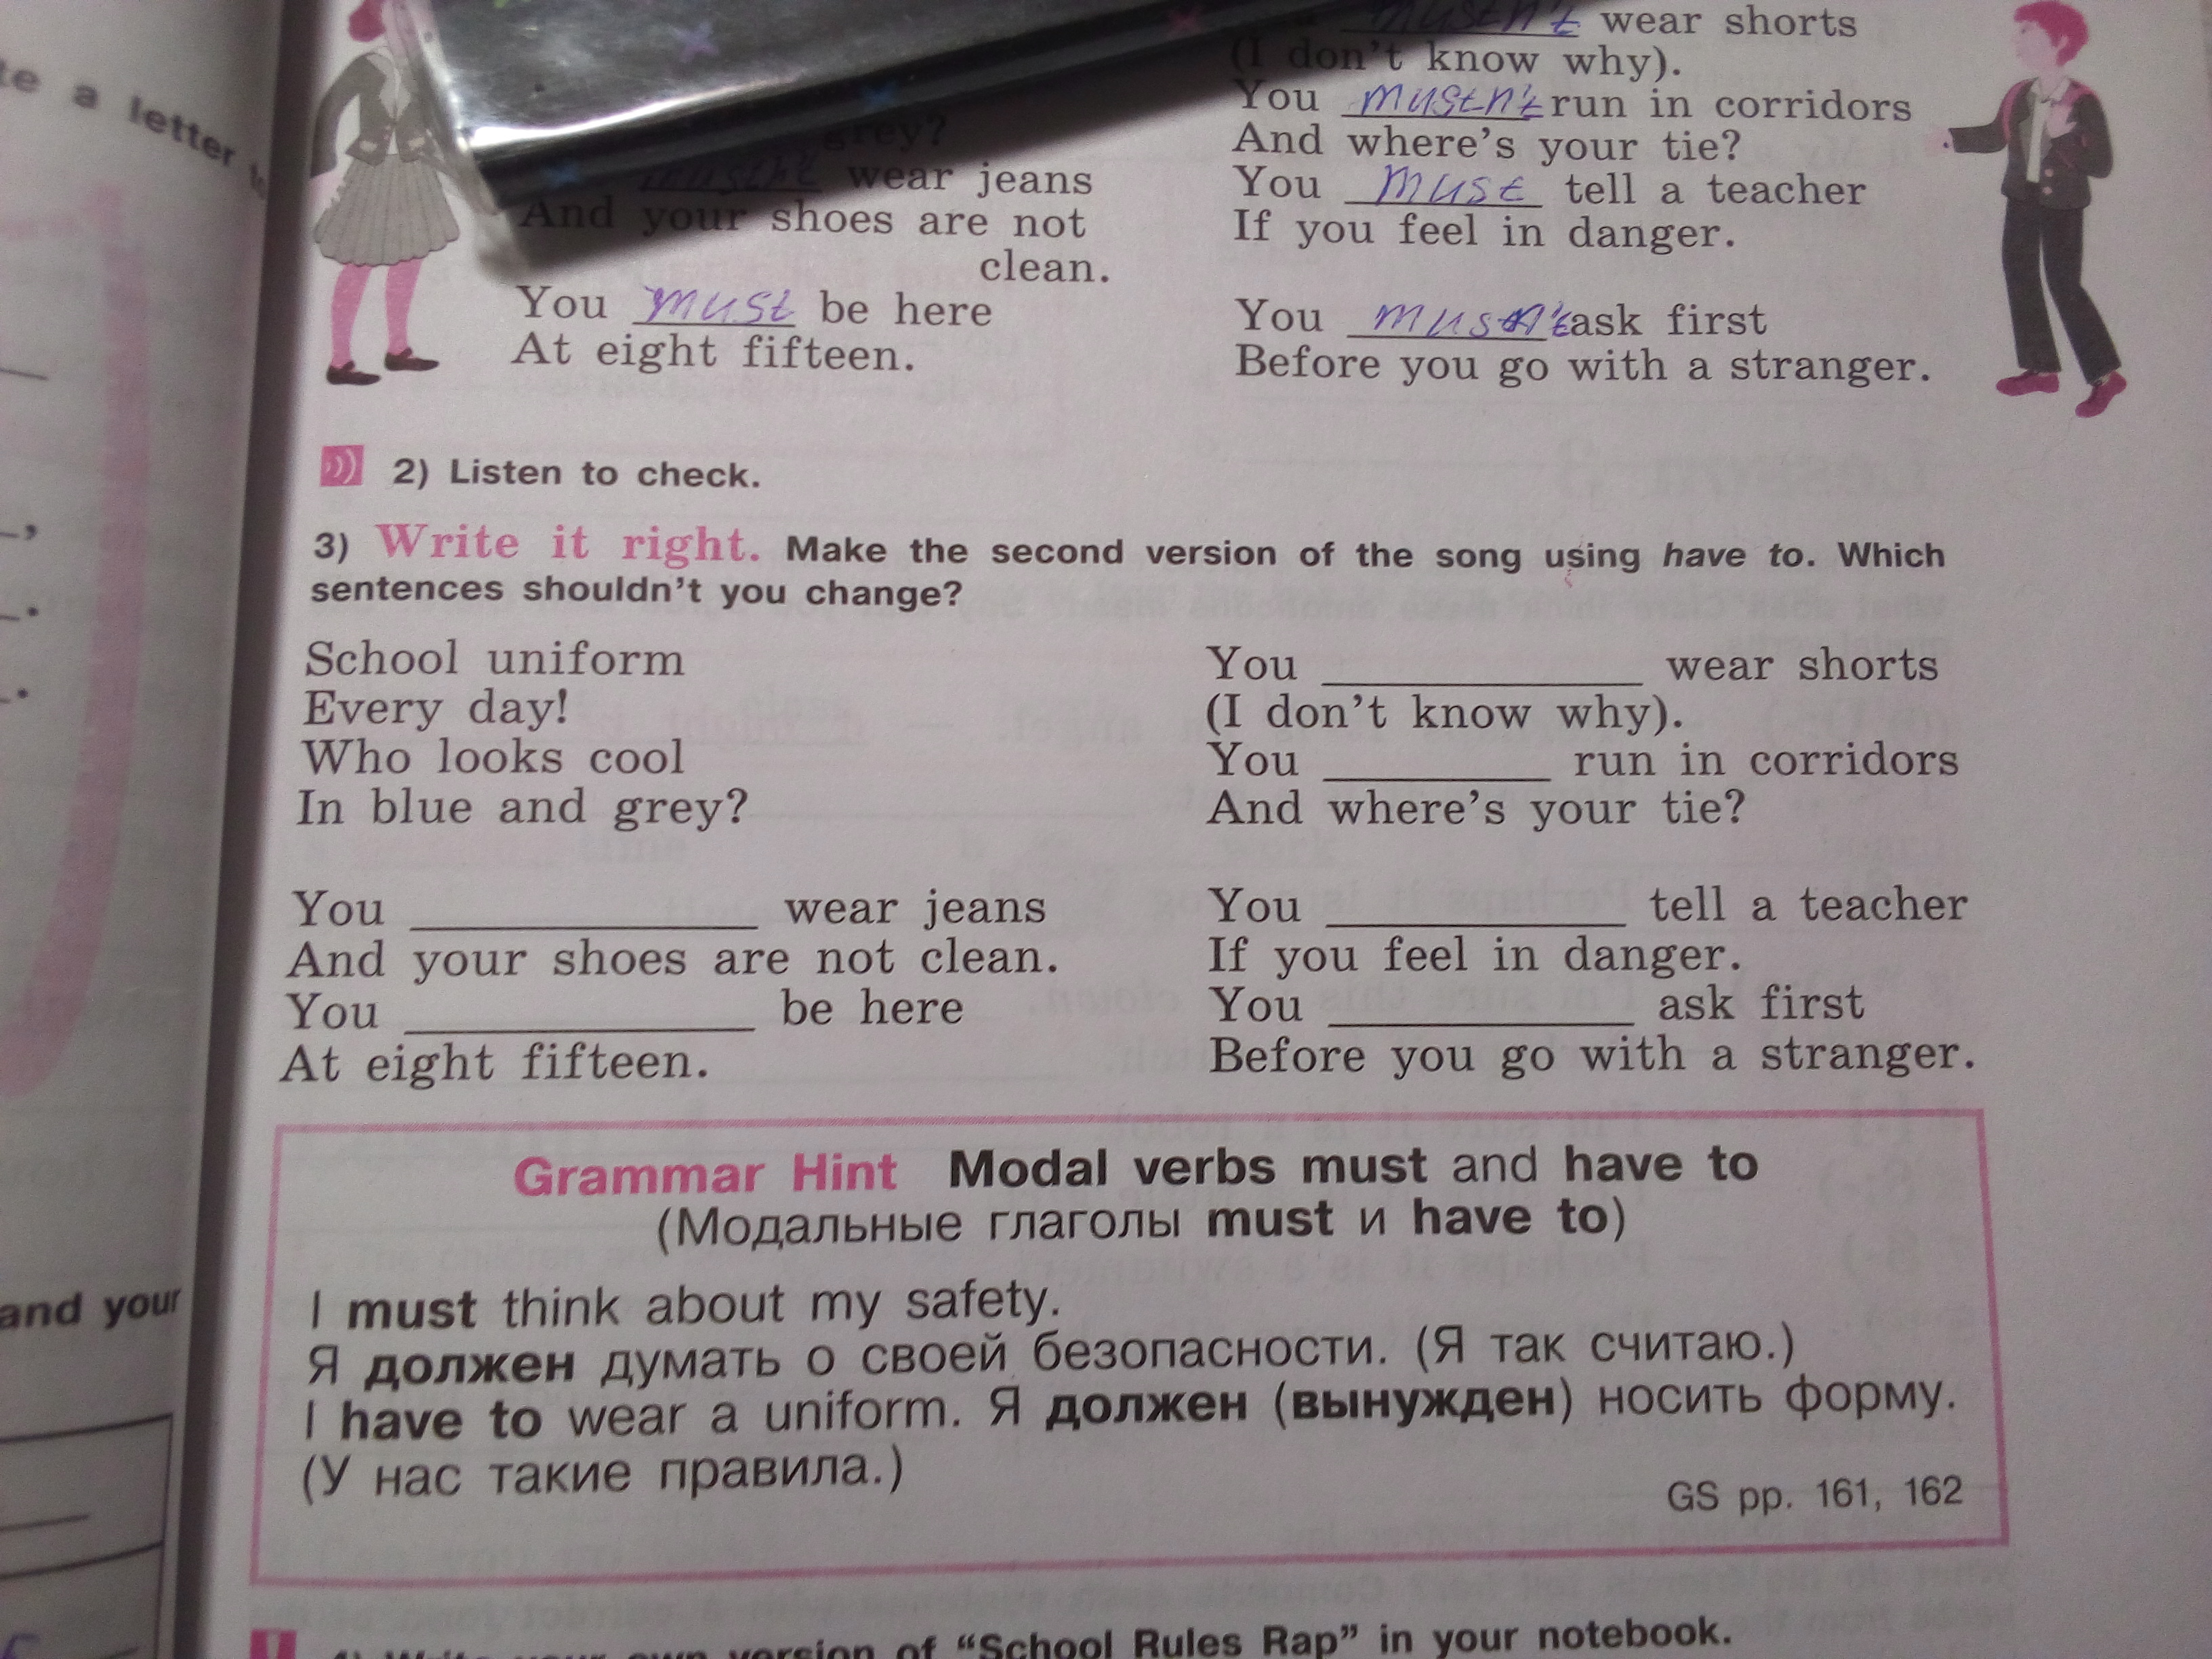 te a letter
wear jeans
And your shoes are not
clean.
You must be here
At eight fifteen.
mustn't wear shorts
(I don't know why).
You mustn't run in corridors
And where's your tie?
You must tell a teacher
If you feel in danger.
You ask first
Before you go with a stranger.
2) Listen to check.
3) Write it right. Make the second version of the song using have to. Which
sentences shouldn't you change?
School uniform
Every day!
Who looks cool
In blue and grey?
You ____ wear jeans
And your shoes are not clean.
You ____ be here
At eight fifteen.
You ____ wear shorts
(I don't know why).
You ____ run in corridors
And where's your tie?
You ____ tell a teacher
If you feel in danger.
You ____ ask first
Before you go with a stranger.
and your
Grammar Hint Modal verbs must and have to
(Модальные глаголы must и have to)
I must think about my safety.
Я должен думать о своей безопасности. (Я так считаю.)
I have to wear a uniform. Я должен (вынужден) носить форму.
(У нас такие правила.)
GS pp. 161, 162
4) Write your own version of "School Rules Rap" in your notebook.